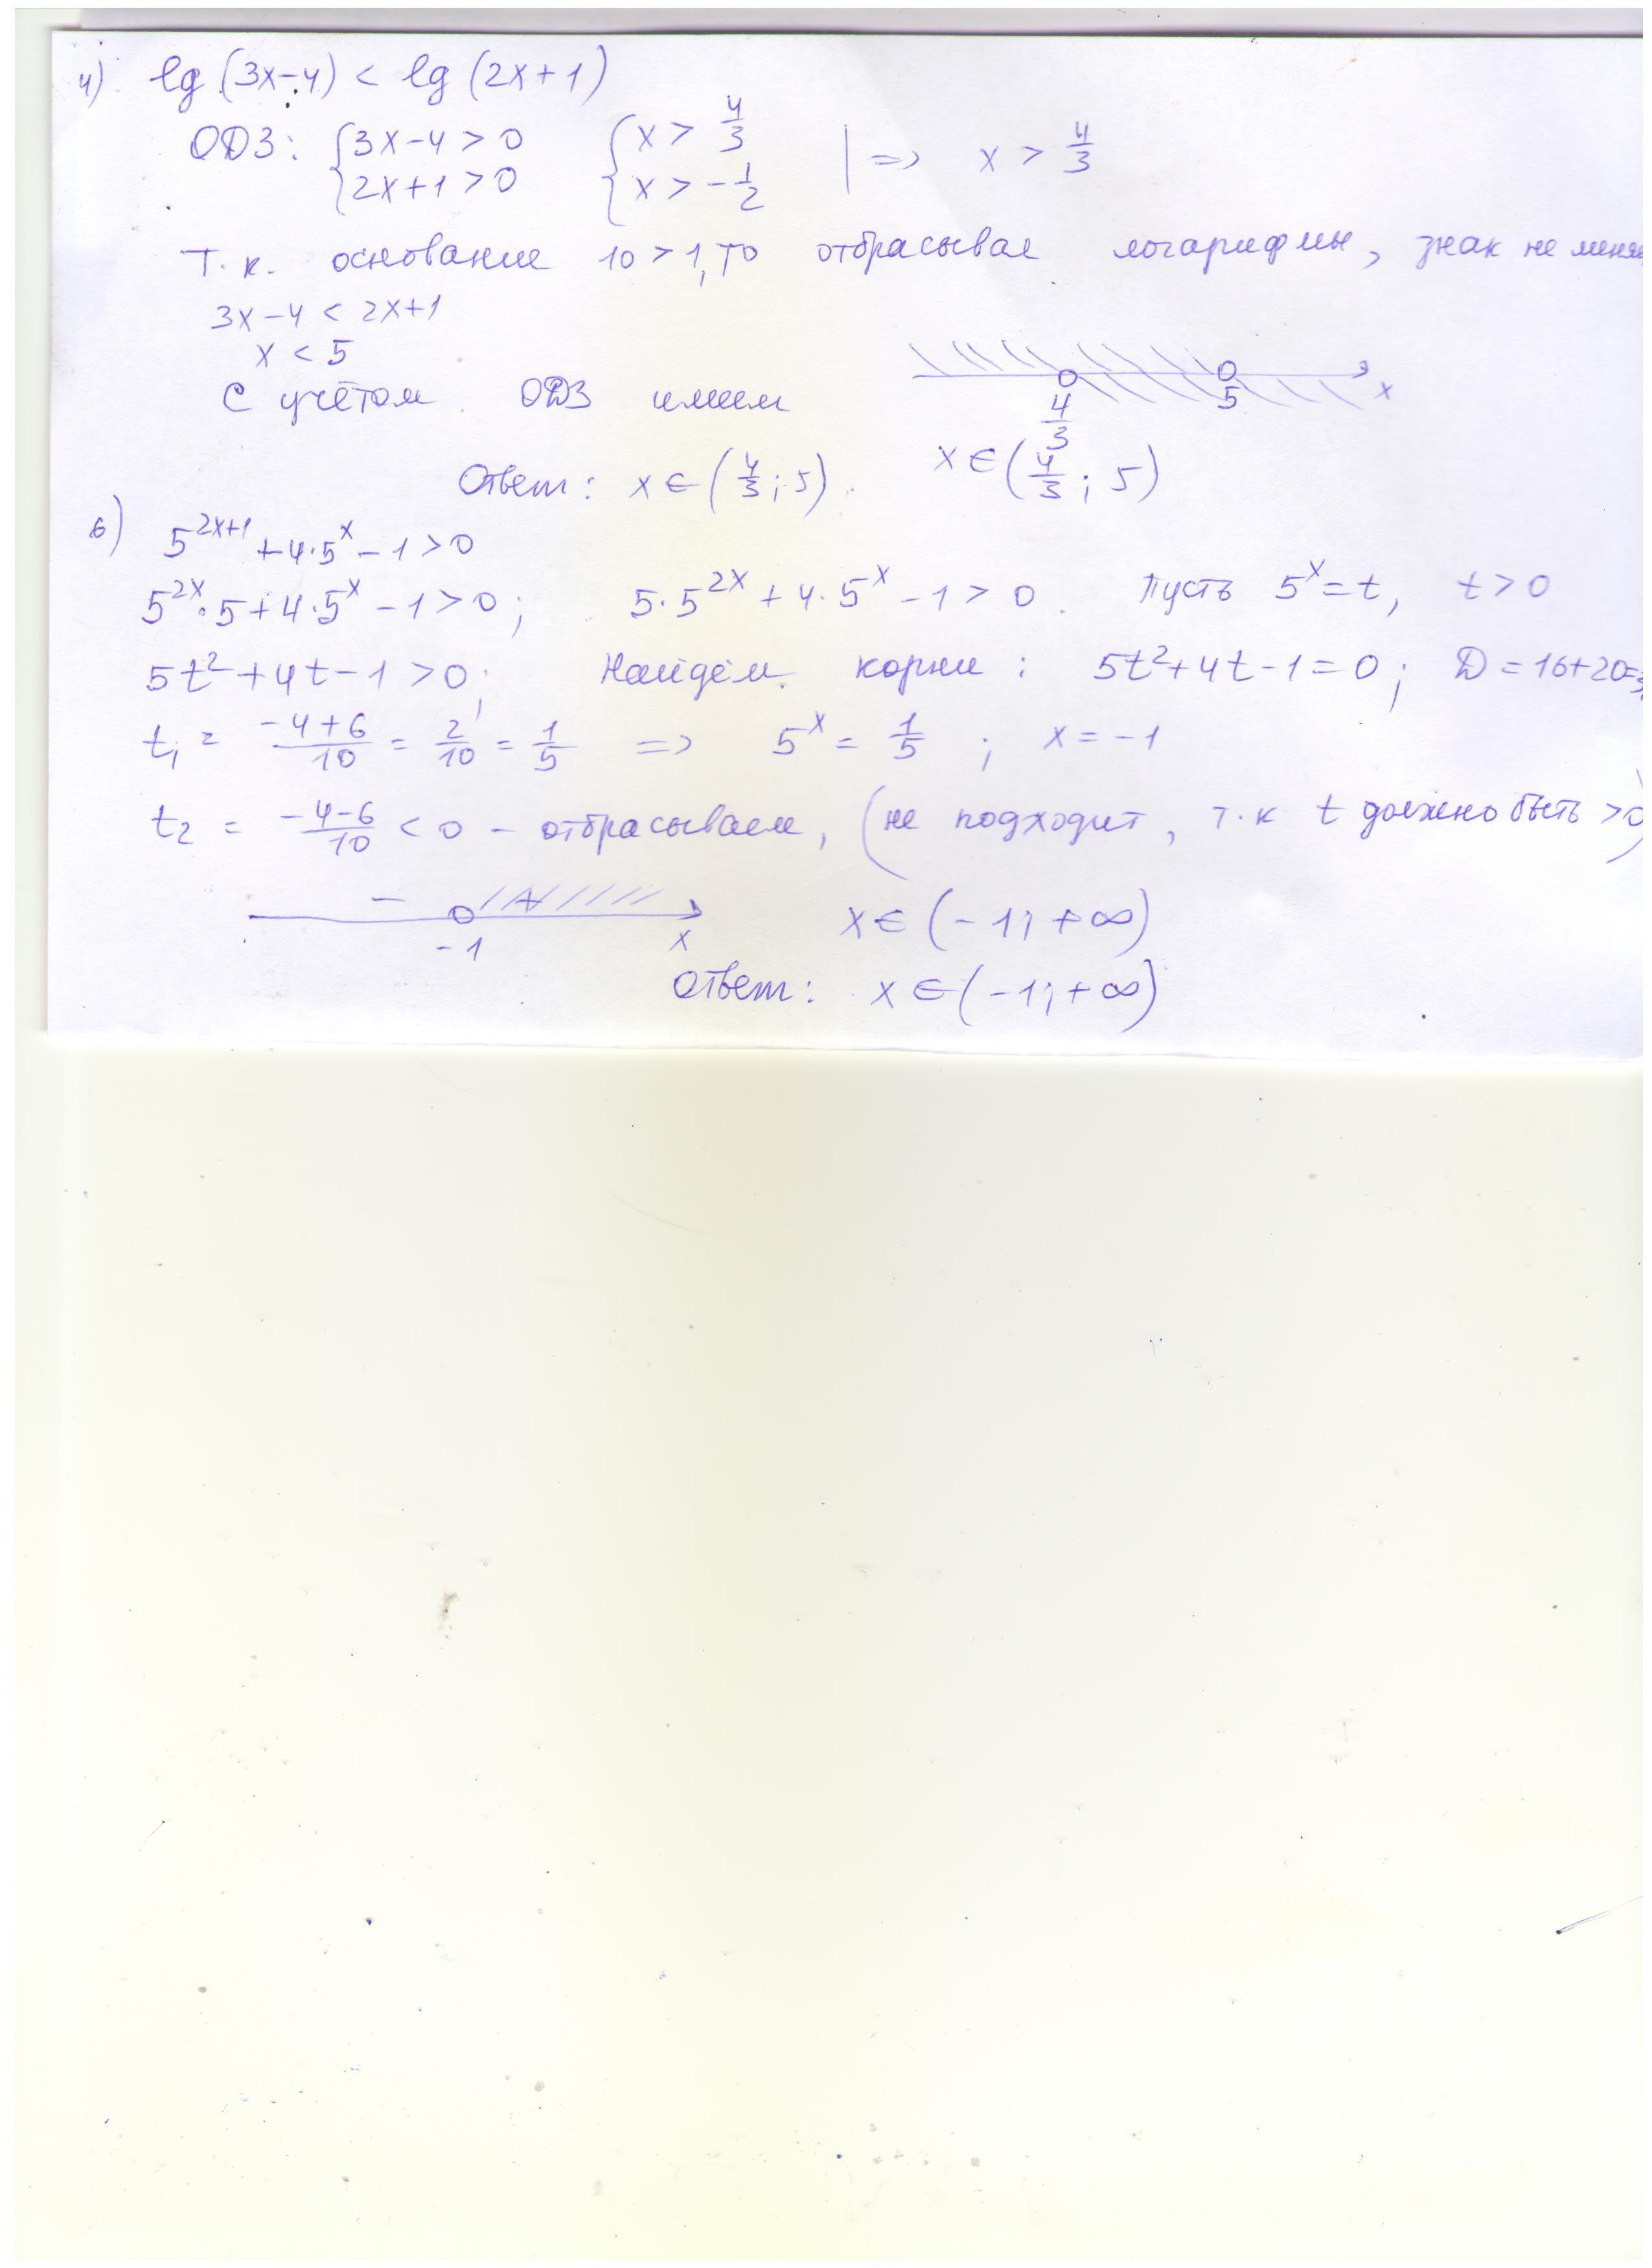 4) lg (3x-4) < lg (2x+1)
ОДЗ: { 3x-4 > 0 { x > 4/3 | => x > 4/3
2x+1 > 0 x > -1/2
Т.к. основание 10 > 1, то отбрасывая логарифмы, знак не
3x-4 < 2x+1
x < 5
С учётом ОДЗ имеем
4/3 5 x
x ∈ (4/3; 5)
Ответ: x ∈ (4/3; 5).
6) 5^(2x+1) + 4·5^x - 1 > 0
5^(2x)·5 + 4·5^x - 1 > 0; 5·5^(2x) + 4·5^x - 1 > 0. Пусть 5^x = t, t > 0
5t² + 4t - 1 > 0; Найдём корни: 5t² + 4t - 1 = 0; D = 16+20=
t₁ = (-4+6)/10 = 2/10 = 1/5 => 5^x = 1/5 ; x = -1
t₂ = (-4-6)/10 < 0 - отбрасываем, (не подходит, т.к t должно быть >0)
- + x ∈ (-1; +∞)
-1 x
Ответ: x ∈ (-1; +∞)